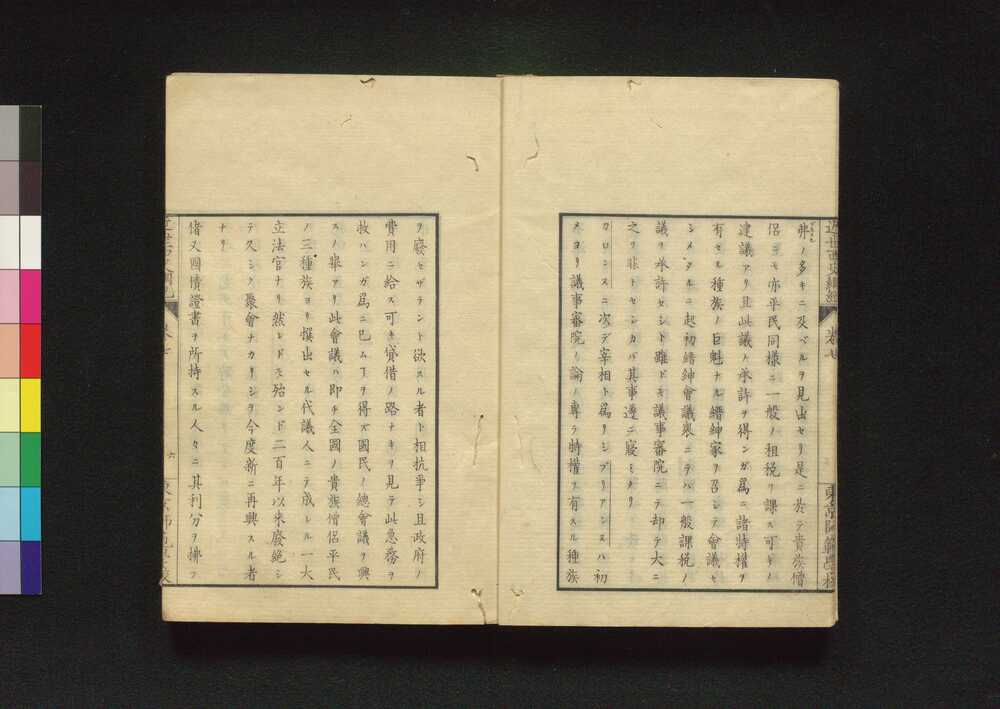 弗ノ多キニ及ベルヲ見出セリ是ニ於テ貴族僧
侶ヲモ亦平民同様ニ一般ノ租税ヲ課ス可キノ
建議アリ且此議ノ承許ヲ得ンガ爲ニ諸特權ヲ
有セル種族ノ巨魁ナル縉紳家ヲ召シテ會議セ
シメタルニ起初縉紳會議衆ニテハ一般課税ノ
議ヲ承許セシト雖ドモ議事審院ニテ却テ大ニ
之ヲ非トセシカバ其事遂ニ寢ミタリ
カロンヌニ次デ宰相ト爲リシブリアンヌハ初
メヨリ議事審院ノ論ノ專ラ特權ヲ有スル種族
近世西史綱紀
卷七
東京師範學校
ヲ廢セザラント欲スル者ト相抗爭シ且政府ノ
費用ニ給ス可キ貸借ノ路ナキヲ見テ此急務ヲ
救ハンガ爲ニ已ムヿヲ得ズ國民ノ總會議ヲ興
スノ擧アリ此會議ハ即チ全國ノ貴族僧侶平民
ノ三種族ヨリ撰出セル代議人ニテ成レル一大
立法官ナリ然レドモ殆ンド二百年以來廢絶シ
テ久シク聚會ナカリシヲ今度新ニ再興スル者
ナリ
偖又國債證書ヲ所持スル人々ニ其利分ヲ拂フ
六